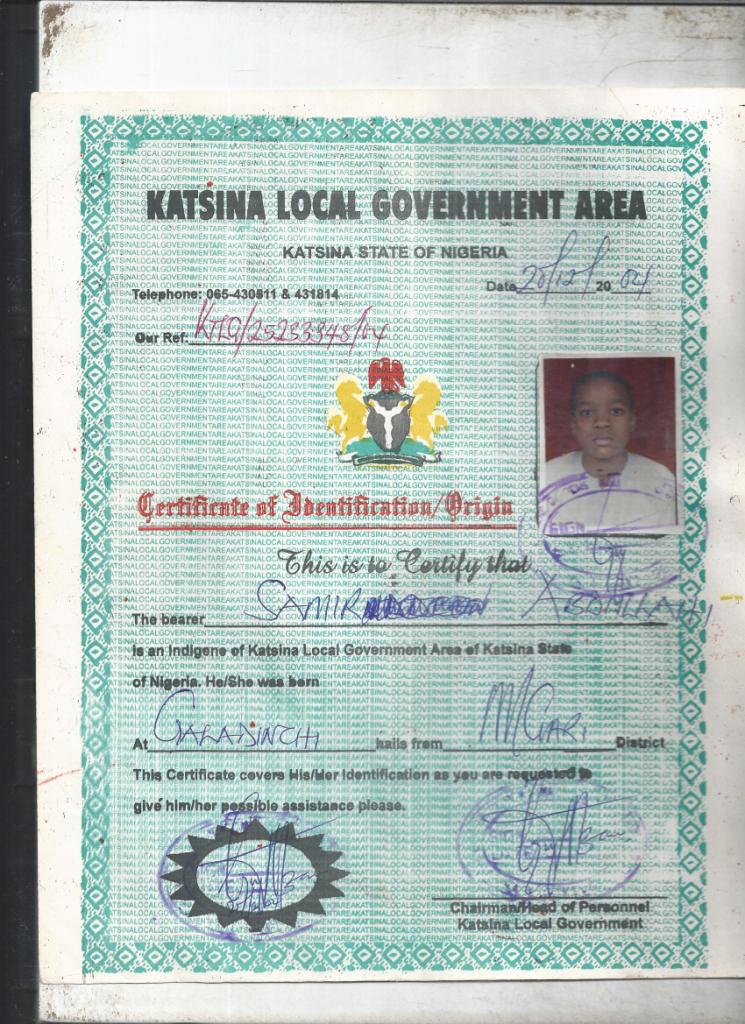 KATSINA LOCAL GOVERNMENT AREA
KATSINA STATE OF NIGERIA
Date 20/12/ 20 04
Telephone: 065-430811 & 431814
Our Ref: KTLG/25233348/04
Certificate of Identification/Origin
This is to Certify that
The bearer SAMIR ABDULLAHI
is an Indigene of Katsina Local Government Area of Katsina State
of Nigeria. He/She was born
At GALADINCHI hails from M/GARI District
This Certificate covers His/Her Identification as you are requested to
give him/her possible assistance please.
SIGN
Chairman/Head of Personnel
Katsina Local Government